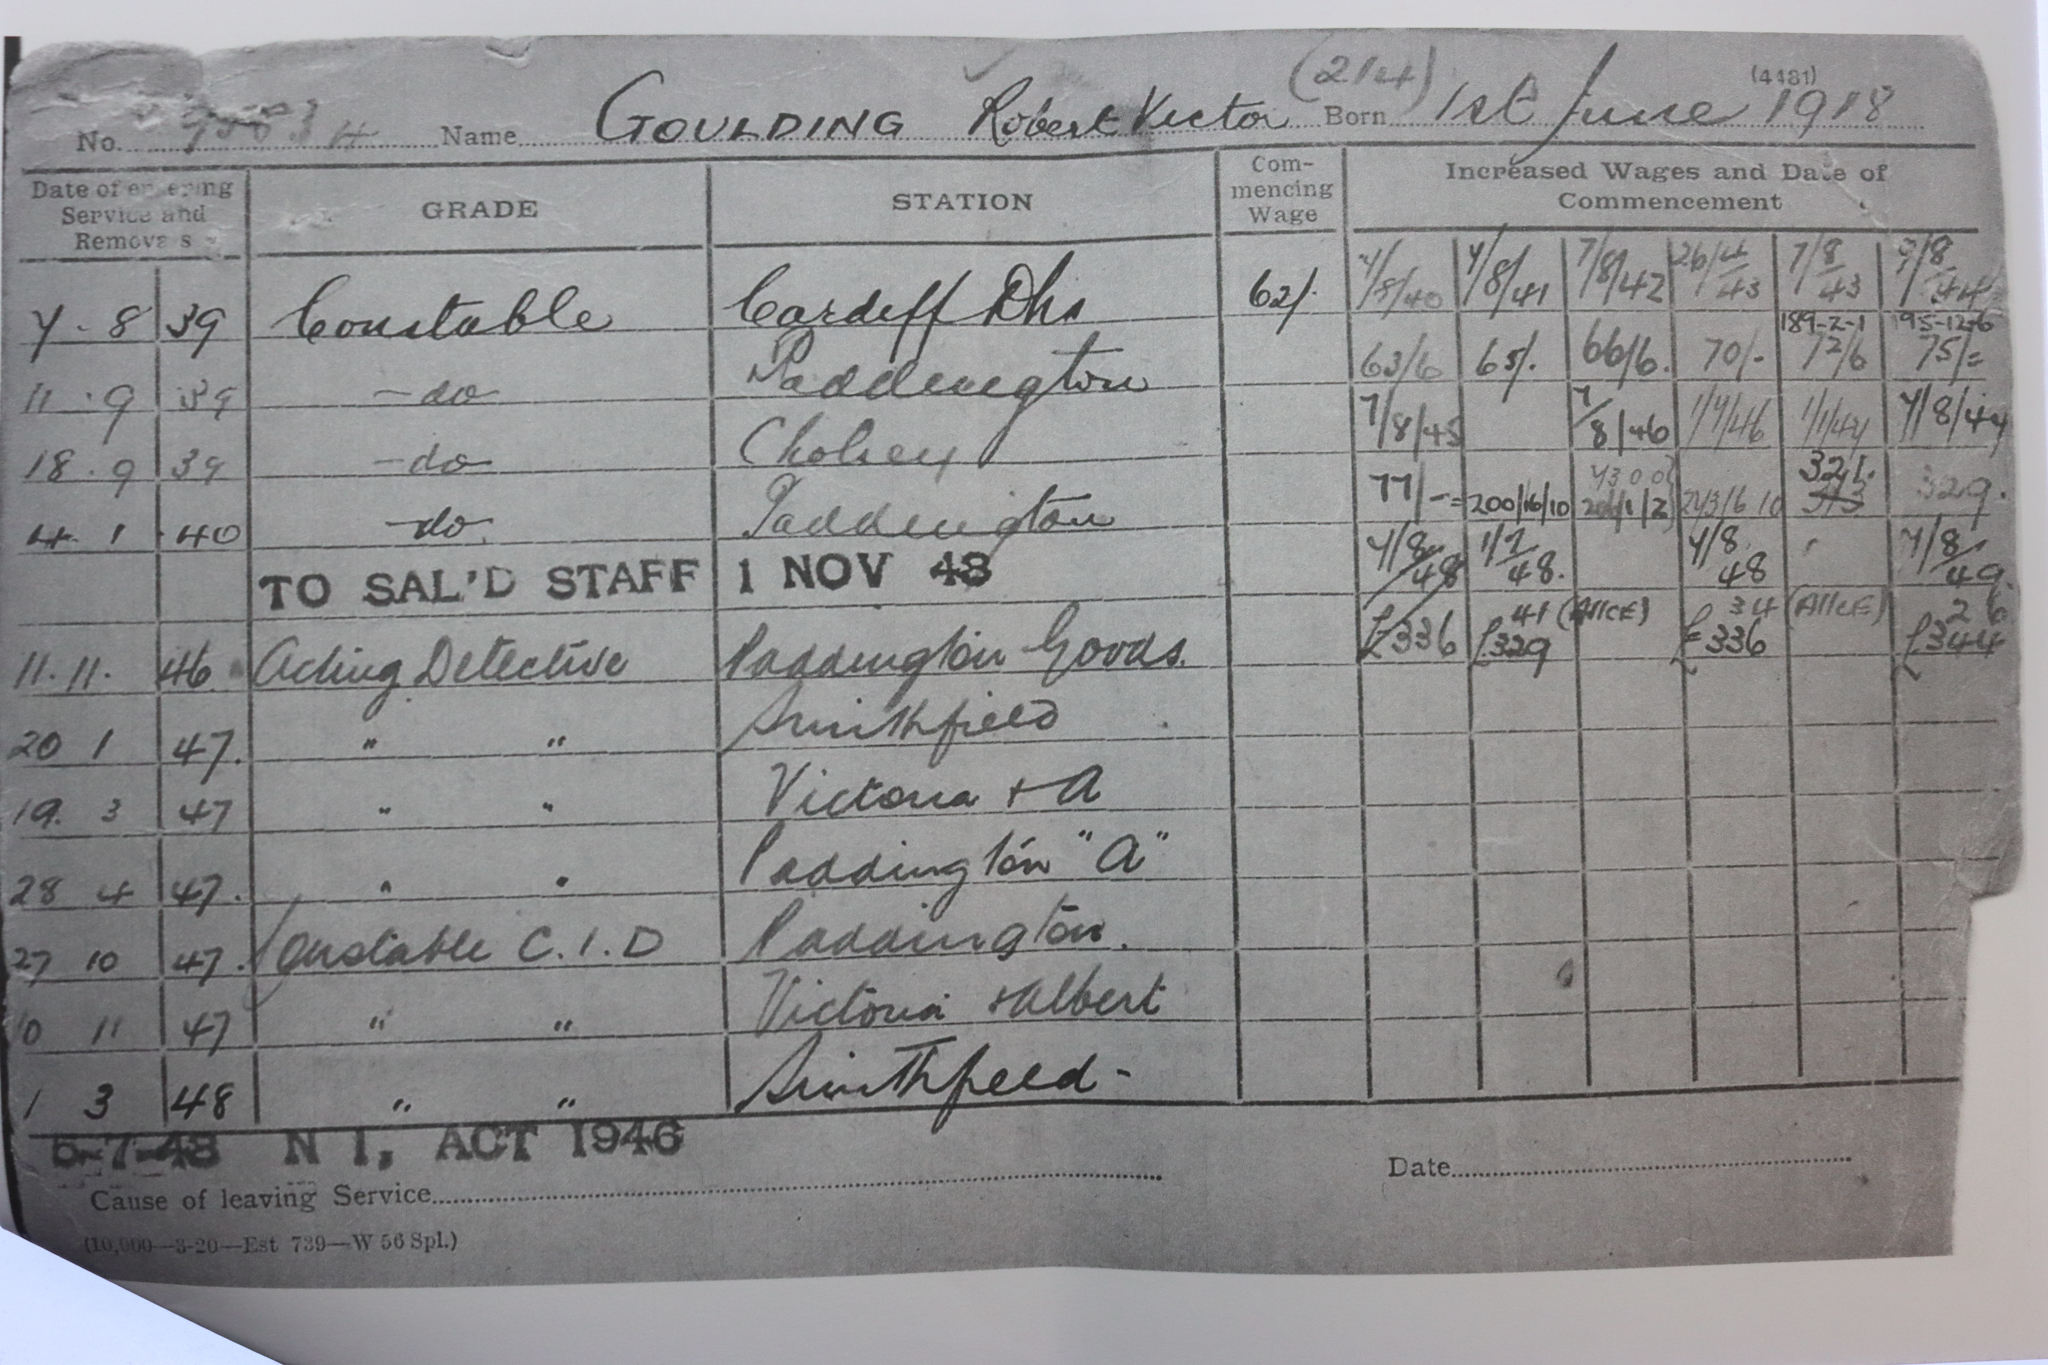 (214) (4481)
No. Name GOULDING Robert Victor Born 1st June 1918
Date of entering Service and Removals GRADE STATION Commencing Wage Increased Wages and Date of Commencement
7/8/40 7/8/41 7/8/42 26/4/43 7/8/43 7/8/44
7 . 8 39 Constable Cardiff Dks 62/.
189-2-1 195-12-6
63/6 65/. 66/6. 70/- 72/6 75/=
11 . 9 39 -do- Paddington
7/8/45 7/8/46 1/7/46 1/1/47 7/8/47
18 . 9 39 -do- Cholsey
321. 
77/-= 200/16/10 313 329.
4. 1 .40 -do- Paddington
7/8/48 1/7/48. 7/8/48 7/8/49.
TO SAL'D STAFF 1 NOV 48
41 (AllCE) 34 (AllCE) 26
£336 £329 £336 £344
11. 11. 46 Acting Detective Paddington Goods.
20 1 47. " " Smithfield
19. 3 47 " " Victoria + A
28 4 47. " " Paddington "A"
27 10 47. Constable C.I.D Paddington.
10 11 47 " " Victoria + Albert
1 3 48 " " Smithfield -
5-7-48 N I, ACT 1946
Cause of leaving Service Date
(10,000—3-20—Est 739—W 56 Spl.)